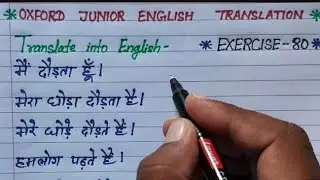 *OXFORD JUNIOR ENGLISH TRANSLATION*
Translate into English- *EXERCISE-80*
मैं दौड़ता हूँ।
मेरा घोड़ा दौड़ता है।
मेरे घोड़े दौड़ते हैं।
हमलोग पढ़ते हैं।